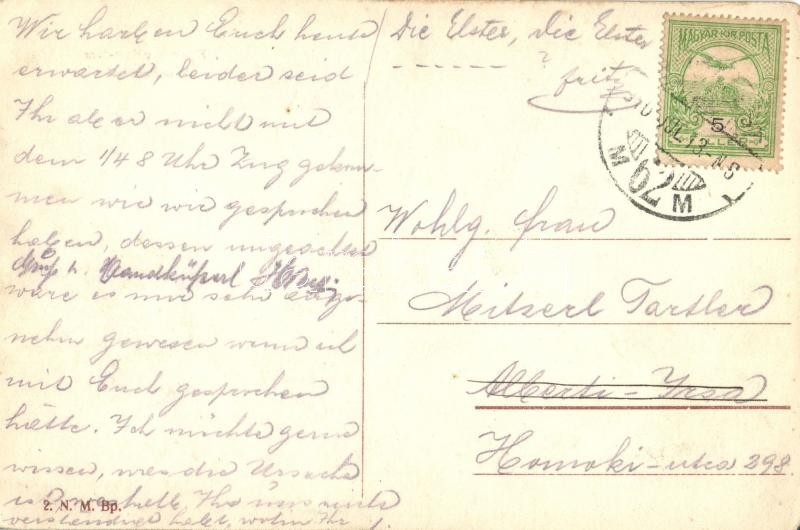 Wir haben Euch heute
erwartet, leider seid
Ihr aber nicht mit
dem 1/4 8 Uhr Zug gekom-
men wie wir gesprochen
haben, dessen ungeachtet
Handküsserl
wäre es mir sehr ange-
nehm gewesen wenn ich
mit Euch gesprochen
hätte. Ich möchte gerne
wissen, was die Ursache
ist, weshalb Ihr uns nicht
verständigt habet, wohin Ihr
2. N. M. Bp.
Die Elster, die Elster
- - - - - - ?
Fritz
MAGYAR KIR. POSTA
5
62
M M
Wohlg. Frau
Mitzerl Tartler
Alberti-Irsa
Homoki-utca 298